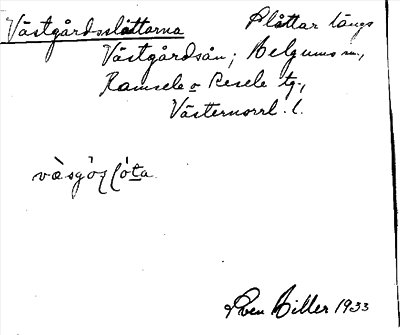 Västgårdsslåttarna Slåttar längs
Västgårdsån; Helgums sn,
Ramsele o Resele tg,
Västernorrl. l.
Sven Hiller 1933